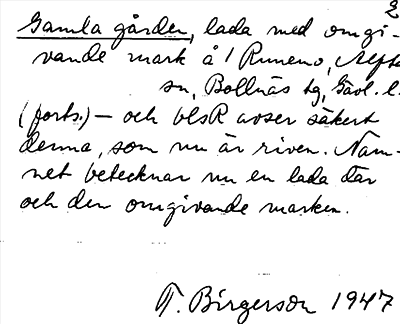 2
Gamla gården, lada med omgi-
vande mark å /Runemo, Alfta
sn, Bollnäs tg, Gävl. l.
(forts.) – och blsR avser säkert
denna, som nu är riven. Nam-
net betecknar nu en lada där
och den omgivande marken.
T. Birgerson 1947